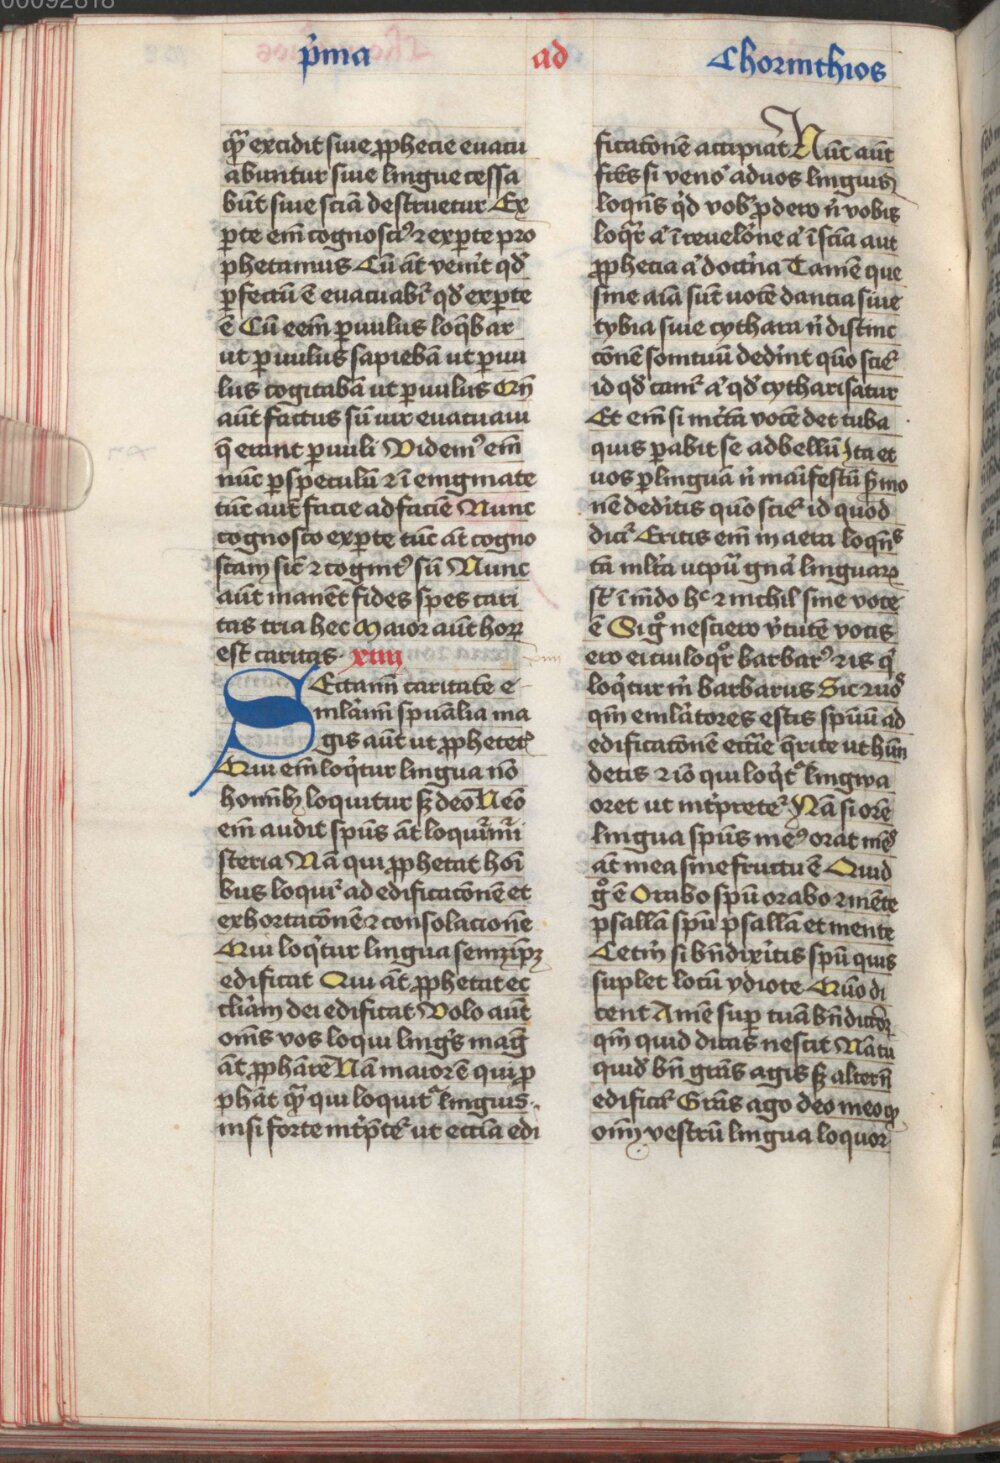 00092818
p̾ma ad Chorinthios
qᷓ excidit siue ꝓphecie euacu
abuntur siue lingue cessa
būt siue sciā destruetur Ex
ꝑte em̄ cognoscim⁹ ⁊ exꝑte pro
phetamus Cū āt ven̾it qd̾
ꝑfectū ē euacuabr̄ qd̾ exꝑte
ē Cū eem̄ ꝑuulus loq̄bar
ut ꝑuulus sapiebā ut ꝑuu
lus cogitabā ut ꝑuulus Qn̄
aūt factus sū uir euacuaui
q̄ erant ꝑuuli Videm⁹ em̄
nūc ꝑ speculū ⁊ ī enigmate
tūc aūt facie ad faciē Nunc
cognosco exꝑte tūc āt cogno
scam sic̄ ⁊ cognit⁹ sū Nunc
aūt manēt fides spes cari
tas tria hec Maior aūt horꝝ
est caritas xiiij
SEctam̄ caritatē e
mlam̄ spūalia ma
gis aūt ut ꝓphetet̾
Qui em̄ loq̾tur lingua nō
hoīnibꝫ loquitur sꝫ deo Nēo
em̄ audit spūs āt loquit̾ mi
steria Nā qui ꝓphetat hoī
bus loquit̾ ad edificatōnē et
exhortatōnē ⁊ consolacionē
Qui loq̾tur lingua semꝫip̄ꝫ
edificat Qui āt ꝓphetat ec
cliam dei edificat Volo aūt
om̄s vos loqui ling̾s mag̾
āt ꝓphāre Nam maior ē qui ꝓ
phāt qᷓ qui loquit̾ linguis
nisi forte int̾p̄tet̾ ut eccīa edi
ficatonē accipiat Nūc aūt
frēs si veno̾ ad uos linguis
loqn̄s q̾d vob̾ ꝓdero n̄ vobis
loq̄r a̾ ī reuelōne a̾ ī scīa aut
ꝓphecia a̾ doct̾na Tamē que
sine aīa sūt uocē dancia siue
tybia siue cythara n̄ distinc
tōnē sonituū ded̾int quō sciet̾
id qd̾ canit̾ a̾ qd̾ cytharisatur
Et em̄ si inc̾ta vocē det tuba
quis ꝑabit se ad bellū Ita et
uos ꝑ linguā n̄ maīfestū s̾mo
nē ded̾itis quō sciet̾ id quod
dicit̾ Eritis em̄ in aera loqn̄s
tā mlt̾a utpu̾ gn̾a linguaꝝ
st̄ ī mdo hᶜ ⁊ nichil sine voce
ē Si g̊ nesciero v̾tutē vocis
ero ei cui loqr̄ barbar⁹ ⁊ is q̾
loq̾tur m̄ barbarus Sic ⁊ uos̾
qm̄ emlatores estis spūū ad
edificatōnē eccīe q̄rite ut hūn
detis ⁊ iō qui loq̾t̾ lingwa
oret ut int̾pretet̾ Nā si orē
lingua spūs me⁹ orat mēs
āt mea sine fructu ē Quid
g̊ ē Orabo spū orabo ⁊ mēte
psallā spū psallā et mente
Cet̾m si bn̄dix̾itis spū quis
suplet locū ydiote Quō di
cent Amē suꝑ tuā bn̄dictōꝫ
qm̄ quid dicas nescit Nā tu
quid̾ bn̄ gr̄as agis sꝫ alter n̄
edificat̾ Gr̄as ago deo meo qꝫ
om̄ vestrū lingua loquor